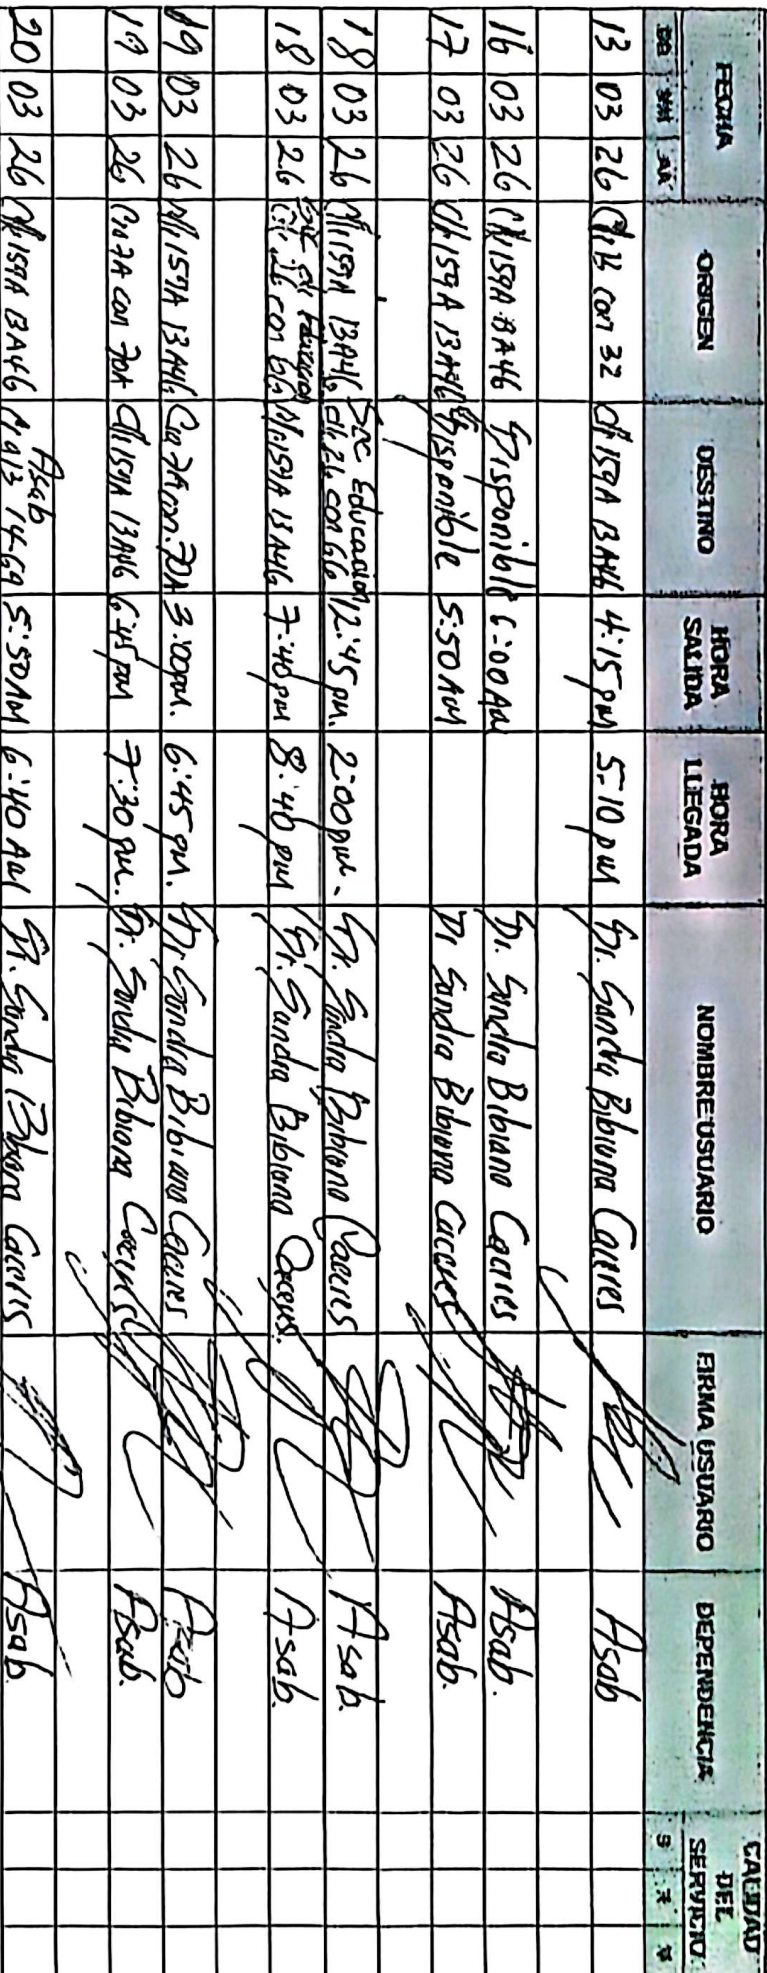 FECHA ORIGEN DESTINO HORA SALIDA HORA LLEGADA NOMBRE USUARIO FIRMA USUARIO DEPENDENCIA CALIDAD DEL SERVICIO
DD MM AA
13 03 26 con 32 159A 13A46 4:15 pm 5:10 pm Dr. Sandra Bibiana Caceres Asab
16 03 26 159A 13A46 Disponible 6:00 AM Dr. Sandra Bibiana Caceres Asab.
17 03 26 159A 13A46 Disponible 5:50 AM Dr Sandra Bibiana Caceres Asab.
18 03 26 159A 13A46 Sec Educacion 26 con 66 12:45 pm. 2:00 pm. Dr. Sandra Bibiana Caceres Asab.
18 03 26 26 con 66 159A 13A46 7:40 pm 8:40 pm Dr. Sandra Bibiana Caceres. Asab.
19 03 26 159A 13A46 Cra 7A con. 70A 3:00 pm. 6:45 pm. Dr. Sandra Bibiana Caceres Asab
19 03 26 Cra 7A con 70A 159A 13A46 6:45 pm 7:30 pm. Dr. Sandra Bibiana Caceres Asab.
20 03 26 159A 13A46 Asab 14-69 5:50 AM 6:40 AM Dr. Sandra Bibiana Caceres Asab.